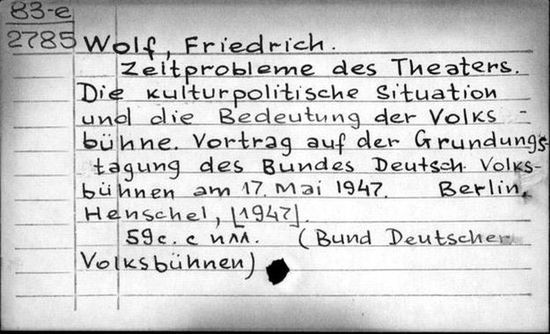 83-e
2785 Wolf, Friedrich.
Zeitprobleme des Theaters.
Die kulturpolitische Situation
und die Bedeutung der Volks-
bühne. Vortrag auf der Grundungs-
tagung des Bundes Deutsch. Volks-
bühnen am 17. Mai 1947. Berlin,
Henschel, [1947].
59 с. с илл. (Bund Deutscher
Volksbühnen)